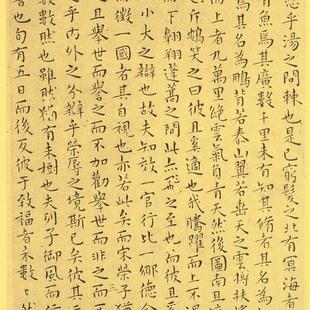 悲乎湯之問棘也是已窮髮之北有冥海者
有魚焉其廣數千里未有知其脩者其名為
其名為鵬背若泰山翼若垂天之雲摶扶
上者九萬里絕雲氣負青天然後圖南且
斥鴳笑之曰彼且奚適也我騰躍而上不過
而下翱翔蓬蒿之間此亦飛之至也而彼且奚
小大之辯也故夫知效一官行比一鄉德合
而徵一國者其自視也亦若此矣而宋榮子
之且舉世而譽之而不加勸舉世而非之而不
乎內外之分辯乎榮辱之境斯已矣彼其
數數然也雖然猶有未樹也夫列子御風而行
善也旬有五日而後反彼于致福者未數數然